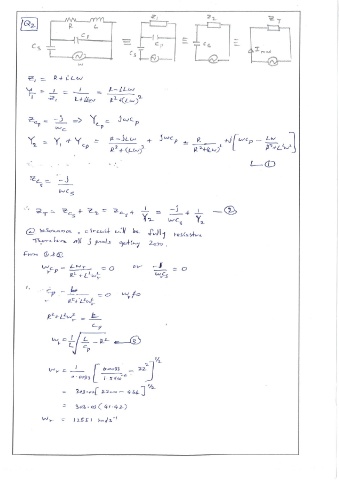 Q2
R L Z1 Z2 ZT
CP CP
CS ≡ CS ≡ CS ≡ Imax
w
Z1 = R + jLw
Y1 = 1/Z1 = 1/(R+jLw) = (R-jLw)/(R²+(Lw)²)
ZCP = -j/wC ⇒ YCP = jwCP
Y2 = Y1 + YCP = (R-jLw)/(R²+(Lw)²) + jwCP = R/(R²+(Lw)²) + j[wCP - Lw/(R²+L²w²)]
①
ZCS = -j/wCS
∴ ZT = ZCS + Z2 = ZCS + 1/Y2 = -j/wCS + 1/Y2 — ②
@ resonance, circuit will be fully resistive
Therefore all j parts going zero.
from ① & ②
wrCP - Lwr/(R²+L²wr²) = 0 or -1/wCS = 0
CP - L/(R²+L²wr²) = 0 wr≠0
R²+L²wr² = L/CP
wr = 1/L √(L/CP - R²) — ③
wr = 1/0.0033 [0.0033/ - 22²]^1/2
= 303.03 (41.42)
wr = 12551 rads⁻¹